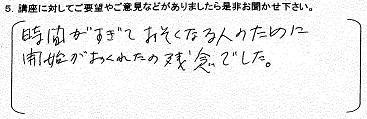 5. 講座に対してご要望やご意見などがありましたら是非お聞かせ下さい。
時間がすぎて おそくなる人のために
開始がおくれたの残念でした。